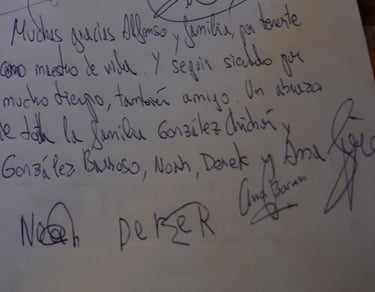 Muchas gracias Alfonso y familia, por tenerte
como maestro de vida. Y seguir siendo por
mucho tiempo, también amigo. Un abrazo
de toda la familia González Chichón y
González Barroso, Noah, Derek y Ana.
Noah DEREK Ana Barroso